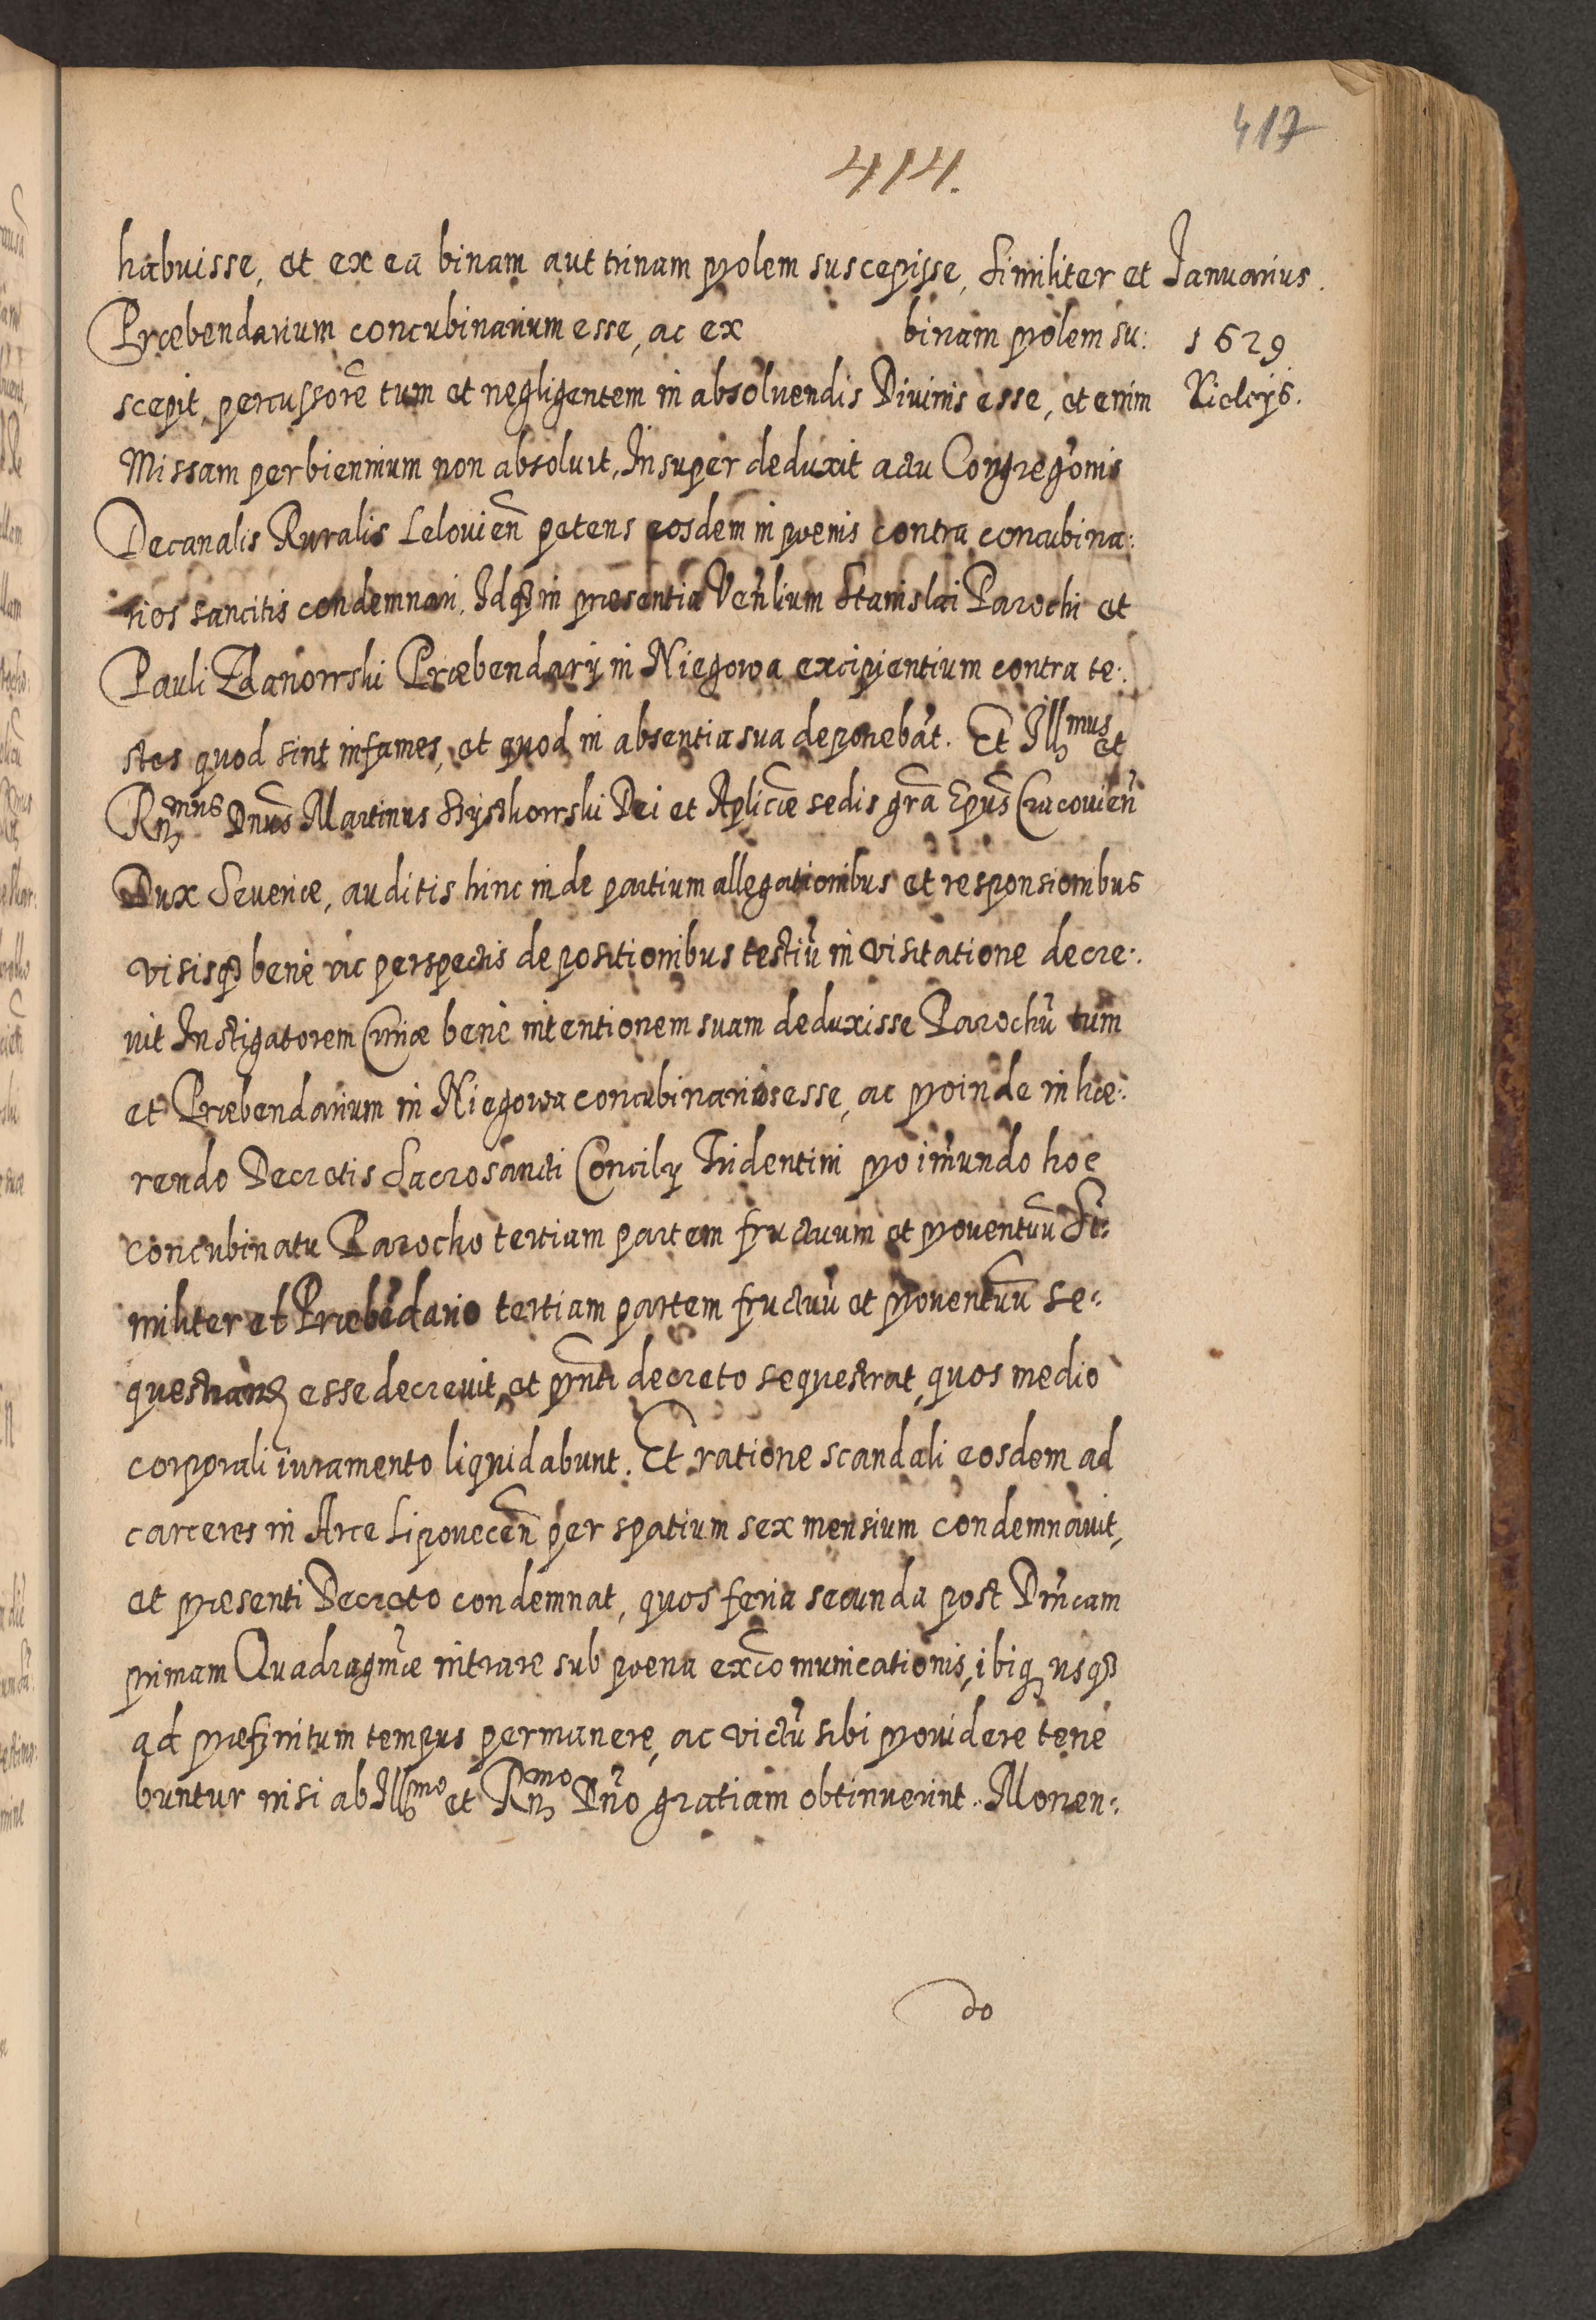 417
414.
habuisse, et ex ea binam aut trinam prolem suscepisse, Similiter et
Januarius.
Præbendarium concubinarium esse, ac ex binam prolem su:
1629
scepit, percussorē tum et negligentem in absoluendis Diuinis esse, etenim
Kielcijs.
Missam per biennium non absoluit, Insuper deduxit actu Congregōnis
Decanalis Ruralis Lelouien̄ petens eosdem in poenis contra concubina:
rios sancitis condemnari, Idq3 in præsentia Ven̄lium Stanislai Parochi et
Pauli Zdanowski Præbendarij in Niegowa excipientium contra te:
stes quod sint infames, et quod in absentia sua deponebāt. Et Illmus et
Rmus Dnūs Martinus Szyszkowski Dei et Aplicæ sedis grā Epūs Cracouien̄
Dux Seueriæ, auditis hinc inde partium allegationibus et responsionibus
visisq3 benè ac perspectis depositionibus testiū in visitatione decre:
uit Instigatorem Curiæ benè intentionem suam deduxisse Parochū tum
et Præbendarium in Niegowa concubinarios esse, ac proinde inhæ:
rendo Decretis Sacrosancti Concilij Tridentini pro im̄undo hoc
concubinatu Parocho tertiam partem fructuum et prouentuū Si:
militer et Præbēdario tertiam partem fructuū et prouentuū se:
questranđ esse decreuit, et pn̄ti decreto sequestrat, quos medio
corporali iuramento liquidabunt. Et ratione scandali eosdem ad
carceres in Arce Lipouecen̄ per spatium sex mensium condemnauit,
et præsenti Decreto condemnat, quos feria secunda post Dn̄icam
primam Quadragm̄æ intrare sub poena excōmunicationis, ibiq3 usq3
ad præfinitum tempus permanere, ac victū sibi prouidere tene
buntur nisi ab Illmo et Rmo Dn̄o gratiam obtinuerint. Monen:
do